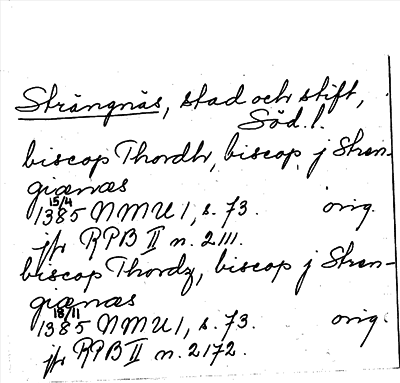 Strängnäs, stad och stift,
Söd. l.
biscop Thordh, biscop j Stren-
giænæs
15/4
1385 NMU 1, s. 73. orig.
jfr RPB II n. 2111.
biscop Thordz, biscop j Stren-
giænæs
18/11
1385 NMU 1, s. 73. orig.
jfr RPB II n. 2172.